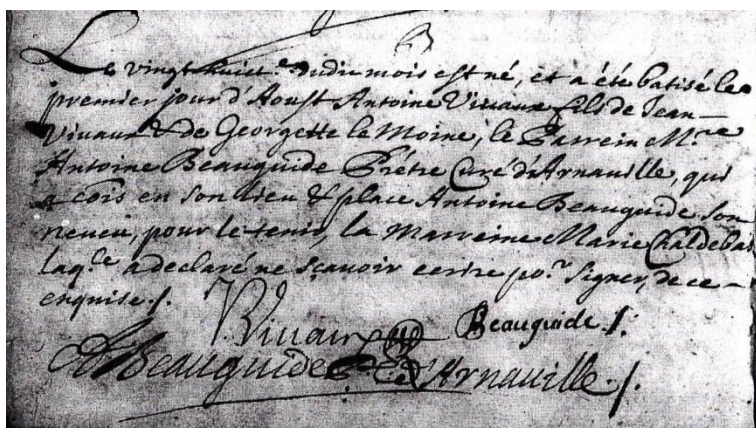 Le vingt huict.e dudit mois est né, et a été batisé le
premier jour d'Aoust Antoine Viuaux fils de Jean
Viuaux & de Georgette le Moine, le Parrein M.re
Antoine Beauguide Prétre Curé d'Arnauille, qui
a cõis en son lieu & place Antoine Beauguide son
neueu, pour le tenir, la Marreine Marie Chaldebas
laq.le a declaré ne sçauoir ecrire po.r signer, de ce
enquise ./.
Viuaux
Beauguide ./.
A Beauguide C d'Arnauille ./.